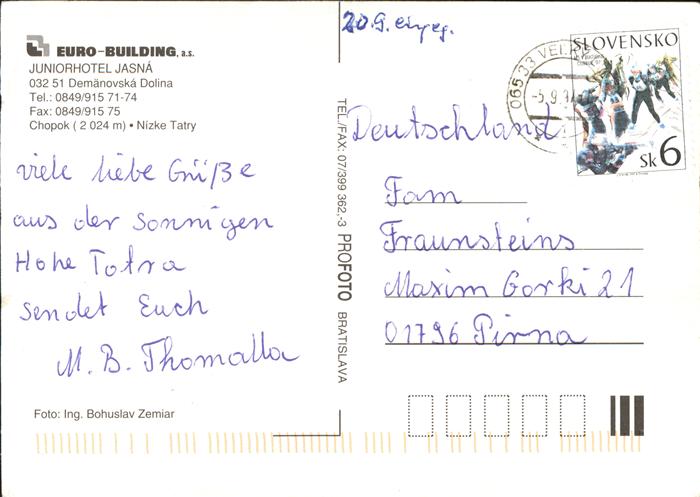 20.9. eingeg.
EURO-BUILDING, a.s.
JUNIORHOTEL JASNÁ
032 51 Demänovská Dolina
Tel.: 0849/915 71-74
Fax: 0849/915 75
Chopok ( 2 024 m) • Nízke Tatry
viele liebe Grüße
aus der Sonnigen
Hohe Totra
sendet Euch
M. B. Thomalla
Foto: Ing. Bohuslav Zemiar
TEL./FAX: 07/399 362,-3 PROFOTO BRATISLAVA
SLOVENSKO
Sk 6
-5.9.
Deutschland
Fam
Fraunsteins
Maxim Gorki 21
01796 Pirna